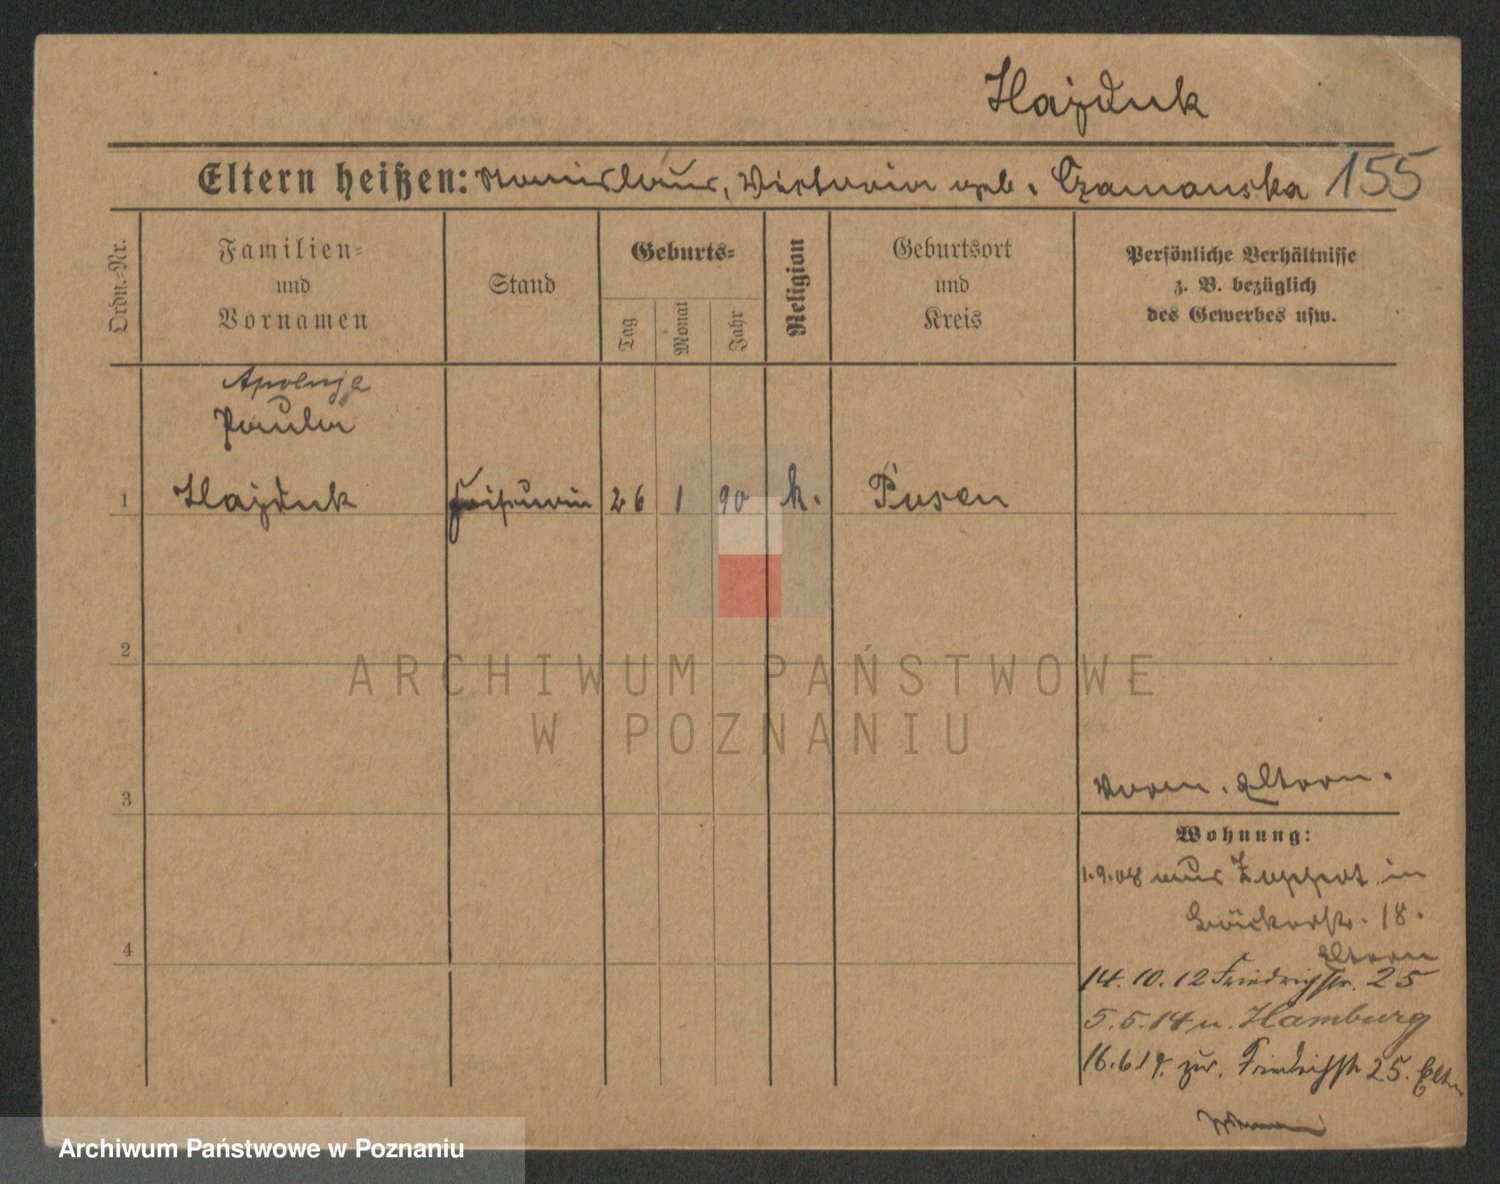 Hajduk
Eltern heißen: Stanislaus, Victoria geb. Czamanska 155
Ordn.-Nr.
Familien-
und
Vornamen
Stand
Geburts-
Tag
Monat
Jahr
Religion
Geburtsort
und
Kreis
Persönliche Verhältnisse
z. B. bezüglich
des Gewerbes usw.
Apolenja
Paula
1 Hajduk Friseurin 26 1 90 k. Posen
2
ARCHIWUM PAŃSTWOWE
W POZNANIU
3
Eltern.
Wohnung:
1.9.08 aus Zoppot in
18.
4
Eltern
14.10.12 Friedrichstr. 25
5.5.14 n. Hamburg
16.6.14. zur. Friedrichstr 25. Eltern
Archiwum Państwowe w Poznaniu